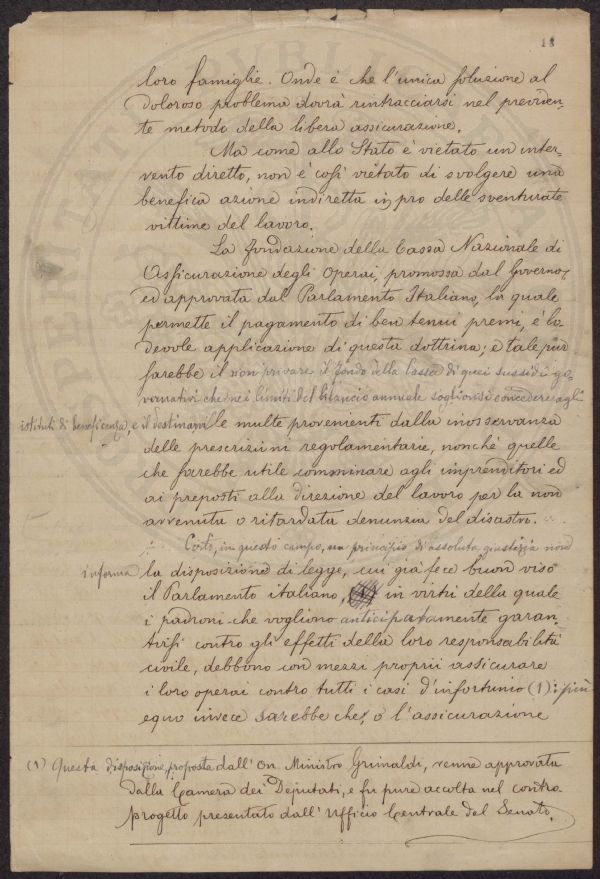 18
loro famiglie. Onde è che l'unica soluzione al
doloroso problema dovrà rintracciarsi nel previden-
te metodo della libera assicurazione.
Ma come allo Stato è vietato un inter-
vento diretto, non è così vietato di svolgere una
benefica azione indiretta in pro delle sventurate
vittime del lavoro.
La fondazione della Cassa Nazionale di
Assicurazione degli Operai, promossa dal Governo,
ed approvata dal Parlamento Italiano, la quale
permette il pagamento di ben tenui premi, è lo-
devole applicazione di questa dottrina; e tale pur
sarebbe il non privare il fondo della Cassa di quei sussidi go-
vernativi che nei limiti del bilancio annuale sogliono si concedere agli
istituti di beneficenza, e il destinarvi le multe provenienti dalla inosservanza
delle prescrizioni regolamentarie, nonchè quelle
che sarebbe utile comminare agli imprenditori ed
ai preposti alla direzione del lavoro per la non
avvenuta o ritardata denunzia del disastro.
Certo, in questo campo, un principio di assoluta giustizia non
informa la disposizione di legge, cui già fece buon viso
il Parlamento italiano, in virtù della quale
i padroni che vogliono anticipatamente garan-
tirsi contro gli effetti della loro responsabilità
civile, debbono con mezzi proprii assicurare
i loro operai contro tutti i casi d'infortunio (1): più
equo invece sarebbe che, o l'assicurazione
(1) Questa disposizione, proposta dall'On. Ministro Grimaldi, venne approvata
dalla Camera dei Deputati, e fu pure accolta nel contro-
progetto presentato dall'Ufficio Centrale del Senato.